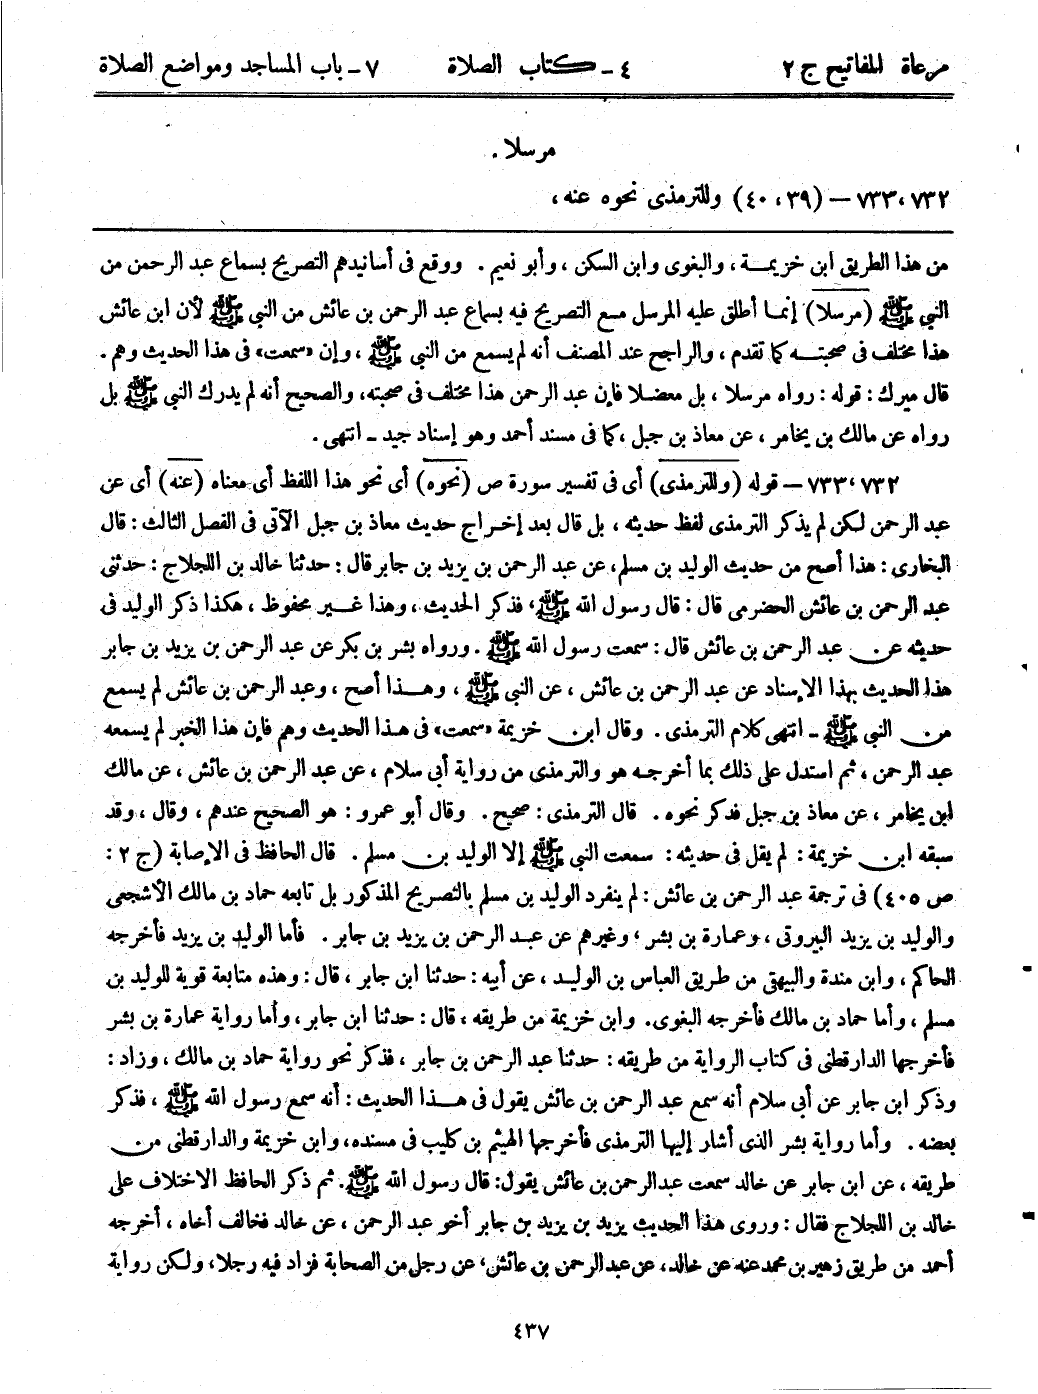 مرعاة المفاتيح ج ٢
٤ ـ كتاب الصلاة
٧ ـ باب المساجد ومواضع الصلاة
مرسلا .
٧٣٢، ٧٣٣ – (٣٩، ٤٠) وللترمذى نحوه عنه ،
من هذا الطريق ابن خزيمة ، والبغوى وابن السكن ، وأبو نعيم . ووقع فى أسانيدهم التصريح بسماع عبد الرحمن من
النبي ﷺ (مرسلا) إنما أطلق عليه المرسل مع التصريح فيه بسماع عبد الرحمن بن عائش من النبي ﷺ لأن ابن عائش
هذا مختلف فى صحبته كما تقدم ، والراجح عند المصنف أنه لم يسمع من النبي ﷺ ، وإن «سمعت» فى هذا الحديث وهم .
قال ميرك : قوله : رواه مرسلا ، بل معضلا فإن عبد الرحمن هذا مختلف فى صحبته، والصحيح أنه لم يدرك النبي ﷺ بل
رواه عن مالك بن يخامر ، عن معاذ بن جبل ، كما فى مسند أحمد وهو إسناد جيد ـ انتهى .
٧٣٢، ٧٣٣ – قوله (وللترمذى) أى فى تفسير سورة ص (نحوه) أى نحو هذا اللفظ أى معناه (عنه) أى عن
عبد الرحمن لكن لم يذكر الترمذى لفظ حديثه ، بل قال بعد إخراج حديث معاذ بن جبل الآتى فى الفصل الثالث : قال
البخارى : هذا أصح من حديث الوليد بن مسلم، عن عبد الرحمن بن يزيد بن جابر قال : حدثنا خالد بن اللجلاج : حدثنى
عبد الرحمن بن عائش الحضرمى قال : قال رسول الله ﷺ، فذكر الحديث ، وهذا غير محفوظ ، هكذا ذكر الوليد فى
حديثه عن عبد الرحمن بن عائش قال : سمعت رسول الله ﷺ . ورواه بشر بن بكر عن عبد الرحمن بن يزيد بن جابر
هذا الحديث بهذا الإسناد عن عبد الرحمن بن عائش ، عن النبي ﷺ ، وهذا أصح ، وعبد الرحمن بن عائش لم يسمع
من النبي ﷺ ـ انتهى كلام الترمذى . وقال ابن خزيمة «سمعت» فى هذا الحديث وهم فإن هذا الخبر لم يسمعه
عبد الرحمن ، ثم استدل على ذلك بما أخرجه هو والترمذى من رواية أبى سلام ، عن عبد الرحمن بن عائش ، عن مالك
ابن يخامر ، عن معاذ بن جبل فدكر نحوه . قال الترمذى : صحيح . وقال أبو عمرو : هو الصحيح عندهم ، وقال ، وقد
سبقه ابن خزيمة : لم يقل فى حديثه : سمعت النبي ﷺ إلا الوليد بن مسلم . قال الحافظ فى الإصابة (ج ٢ :
ص ٤٠٥) فى ترجمة عبد الرحمن بن عائش : لم ينفرد الوليد بن مسلم بالتصريح المذكور بل تابعه حماد بن مالك الأشجعى
والوليد بن يزيد البيروتى ، وعمارة بن بشر ، وغيرهم عن عبد الرحمن بن يزيد بن جابر . فأما الوليد بن يزيد فأخرجه
الحاكم ، وابن مندة والبيهقى من طريق العباس بن الوليد ، عن أبيه : حدثنا ابن جابر ، قال : وهذه متابعة قوية للوليد بن
مسلم ، وأما حماد بن مالك فأخرجه البغوى. وابن خزيمة من طريقه ، قال : حدثنا ابن جابر، وأما رواية عمارة بن بشر
فأخرجها الدارقطنى فى كتاب الرواية من طريقه : حدثنا عبد الرحمن بن جابر ، فذكر نحو رواية حماد بن مالك ، وزاد :
وذكر ابن جابر عن أبى سلام أنه سمع عبد الرحمن بن عائش يقول فى هذا الحديث : أنه سمع رسول الله ﷺ ، فذكر
بعضه . وأما رواية بشر الذى أشار إليها الترمذى فأخرجها الهيثم بن كليب فى مسنده، وابن خزيمة والدارقطنى من
طريقه ، عن ابن جابر عن خالد سمعت عبد الرحمن بن عائش يقول: قال رسول الله ﷺ. ثم ذكر الحافظ الاختلاف على
خالد بن اللجلاج فقال : وروى هذا الحديث يزيد بن يزيد بن جابر أخو عبد الرحمن ، عن خالد فخالف أخاه ، أخرجه
أحمد من طريق زهير بن محمد عنه عن خالد، عن عبد الرحمن بن عائش، عن رجل من الصحابة فزاد فيه رجلا، ولكن رواية
٤٣٧